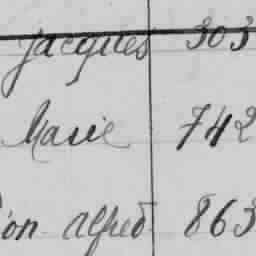 Jacques 303
Marie 742
on Alfred 863